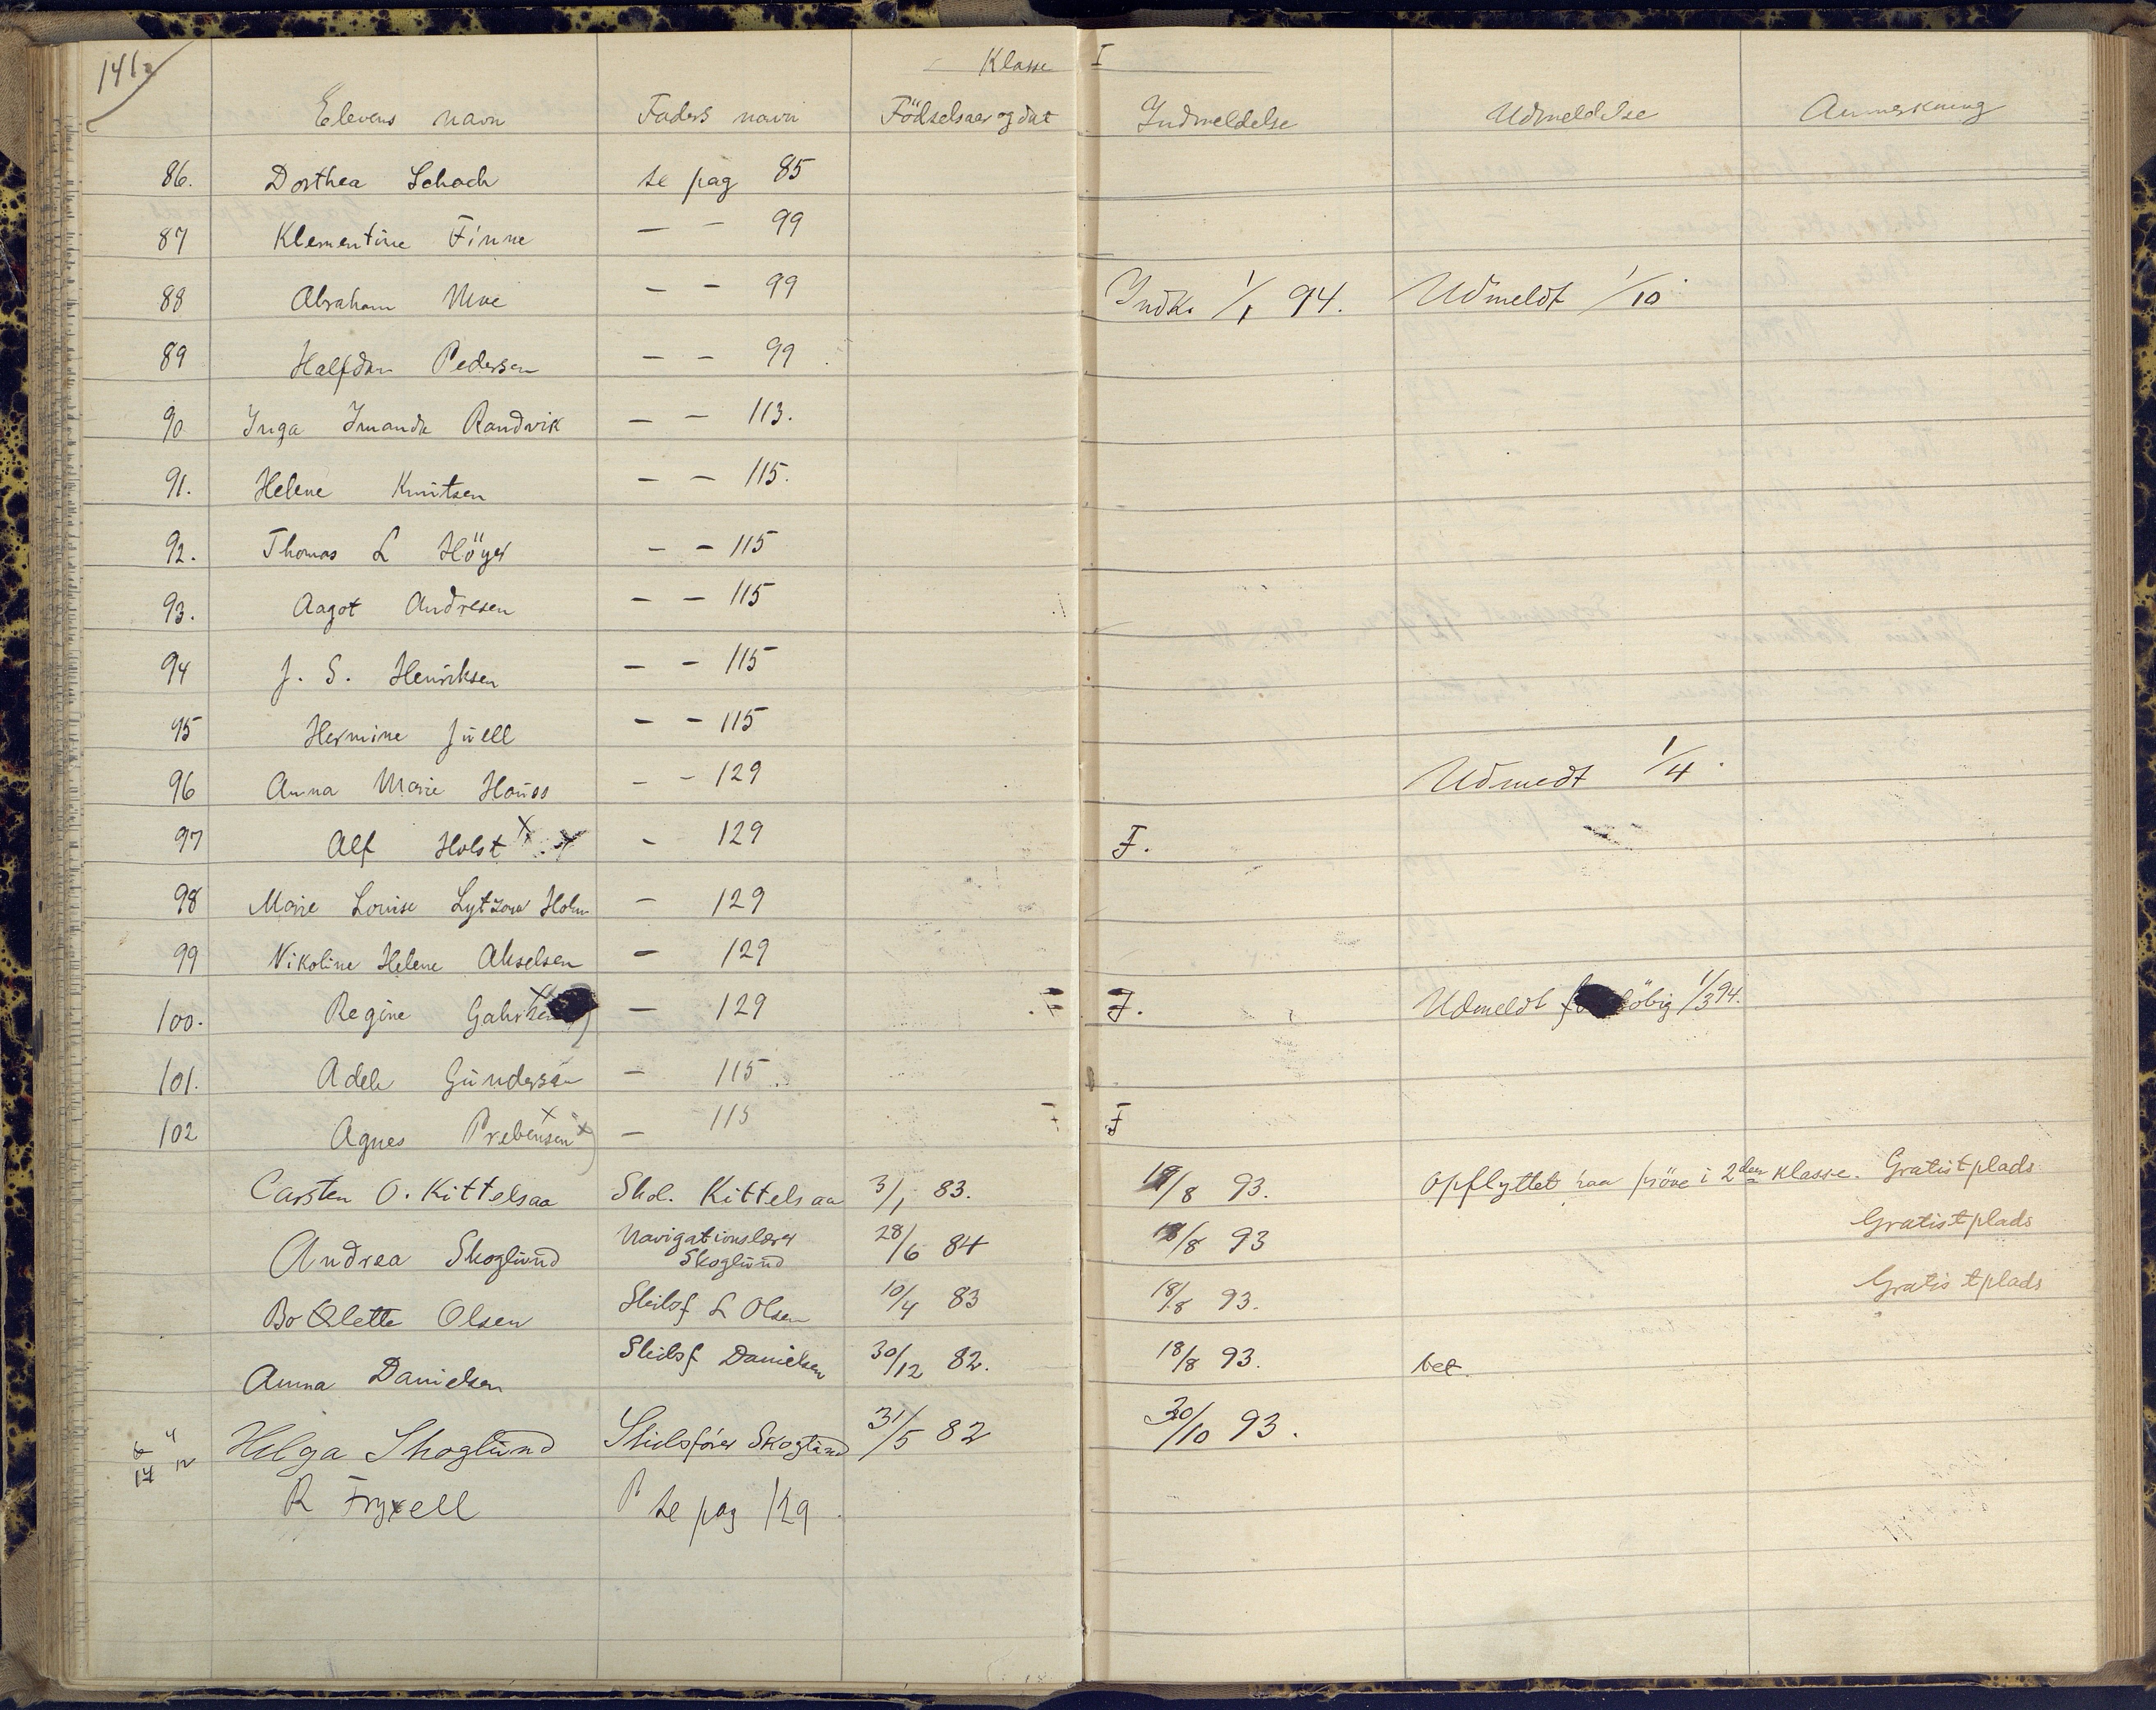 141
Klasse I
Elevens navn Faders navn Födselsaar og dat Indmeldelse Udmeldelse Anmerkning
86. Dorthea Schach se pag 85
87 Klementine Finne — - 99
88 Abraham Moe — — 99 Indk. 1/1 94. Udmeldt 1/10
89 Halfdan Pedersen — — 99
90 Inga Amanda Randvik — — 113.
91. Helene Knutsen — — 115.
92. Thomas L Höyer — — 115
93. Aagot Andresen — — 115
94 J. S. Henriksen — — 115
95 Hermine Juell — — 115
96 Anna Marie Houss — - 129 Udmedt 1/4
97 Alf Holst x x - 129 F.
98 Marie Louise Lytzow Holm — 129
99 Nikoline Helene Akselsen — 129
100. Regine — 129 F. Udmeldt 1/3 94.
101. Adele Gundersen — 115
102 Agnes Prebensen x x — 115 F
Carsten O. Kittelsaa Skol. Kittelsaa 3/1 83. /8 93. Opflyttet paa pröve i 2den klasse. Gratistplads
Andrea Skoglund Navigationslærer Skoglund 28/6 84 18/8 93 Gratistplads
Bolette Olsen Skibsf L Olsen 10/4 83 18/8 93. Gratistplads
Anna Danielsen Skibsf Danielsen 30/12 82. 18/8 93. bet.
Helga Skoglund Skibsförer Skoglund 31/5 82 30/10 93.
R Fryxell se pag 129